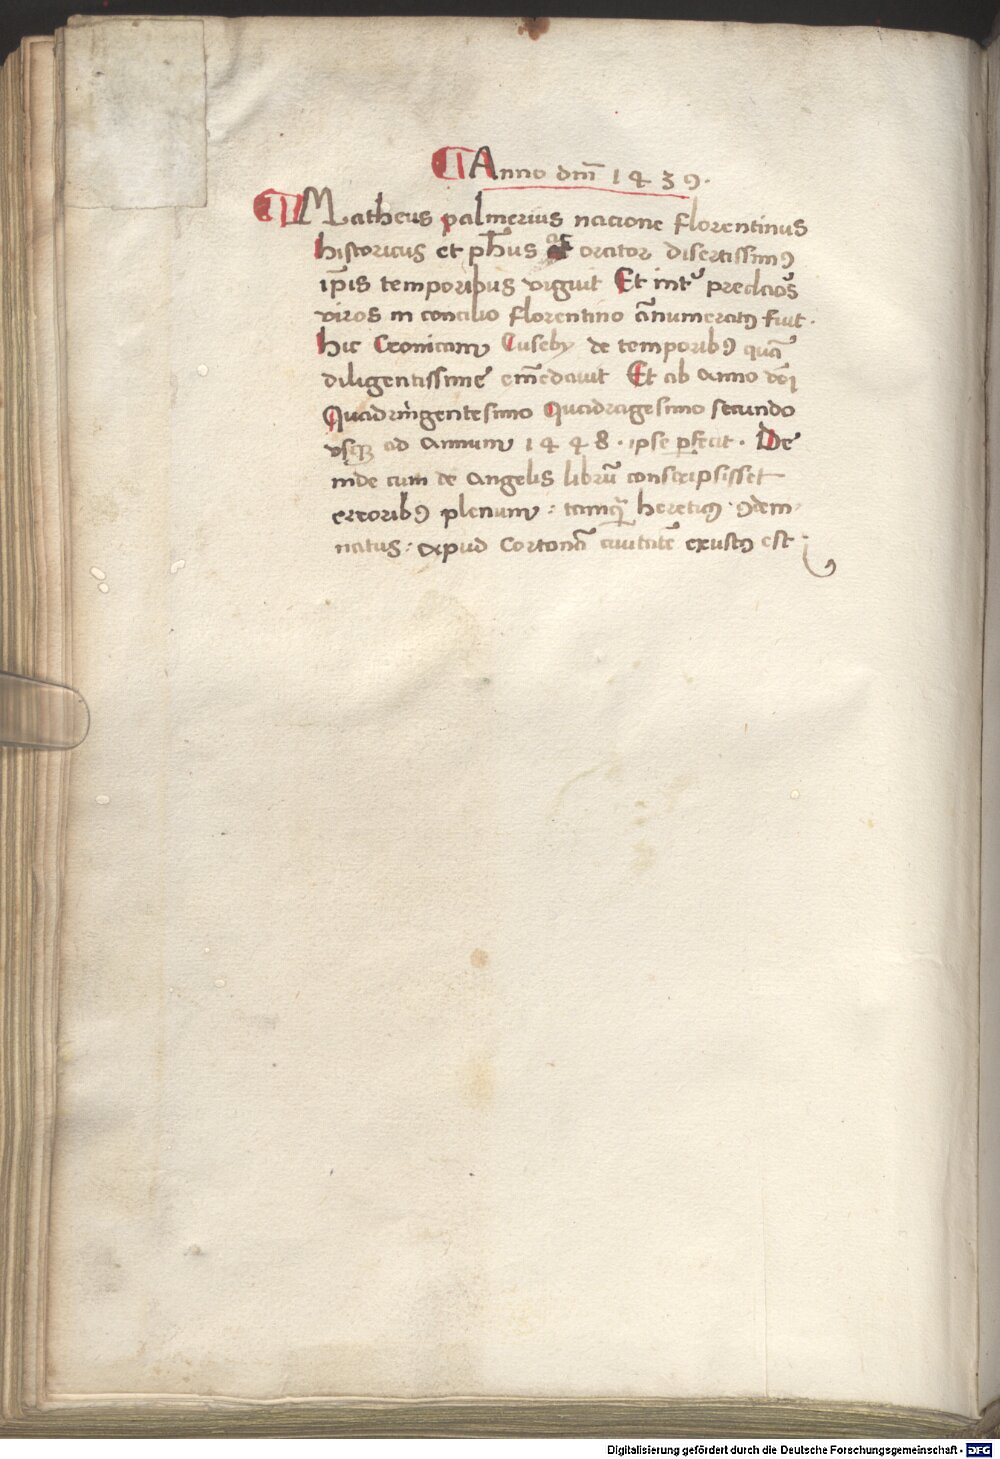 ¶ Anno dm̄ 1439.
¶ Matheus palmerius nacione florentinus
historicus et ph̄us orator disertissimꝰ
ip̄is temporibus viguit Et int᷒ preclaōs
viros in concilio florentino ānumeratꝰ fuit.
hic Cronicam Eusebÿ de temporibꝰ quā
diligentissime em̄edauit Et ab Anno dn̄i
Quadringentesimo Quadragesimo secundo
vsqꝫ ad Annum 1448. ipse ꝑfecit. De
inde cum de Angelis librū conscripsisset
erroribꝰ plenum: tamq̄ hereticꝰ ꝯdem-
natus: apud Cortonā ciuitatē exustꝰ est
Digitalisierung gefördert durch die Deutsche Forschungsgemeinschaft - DFG